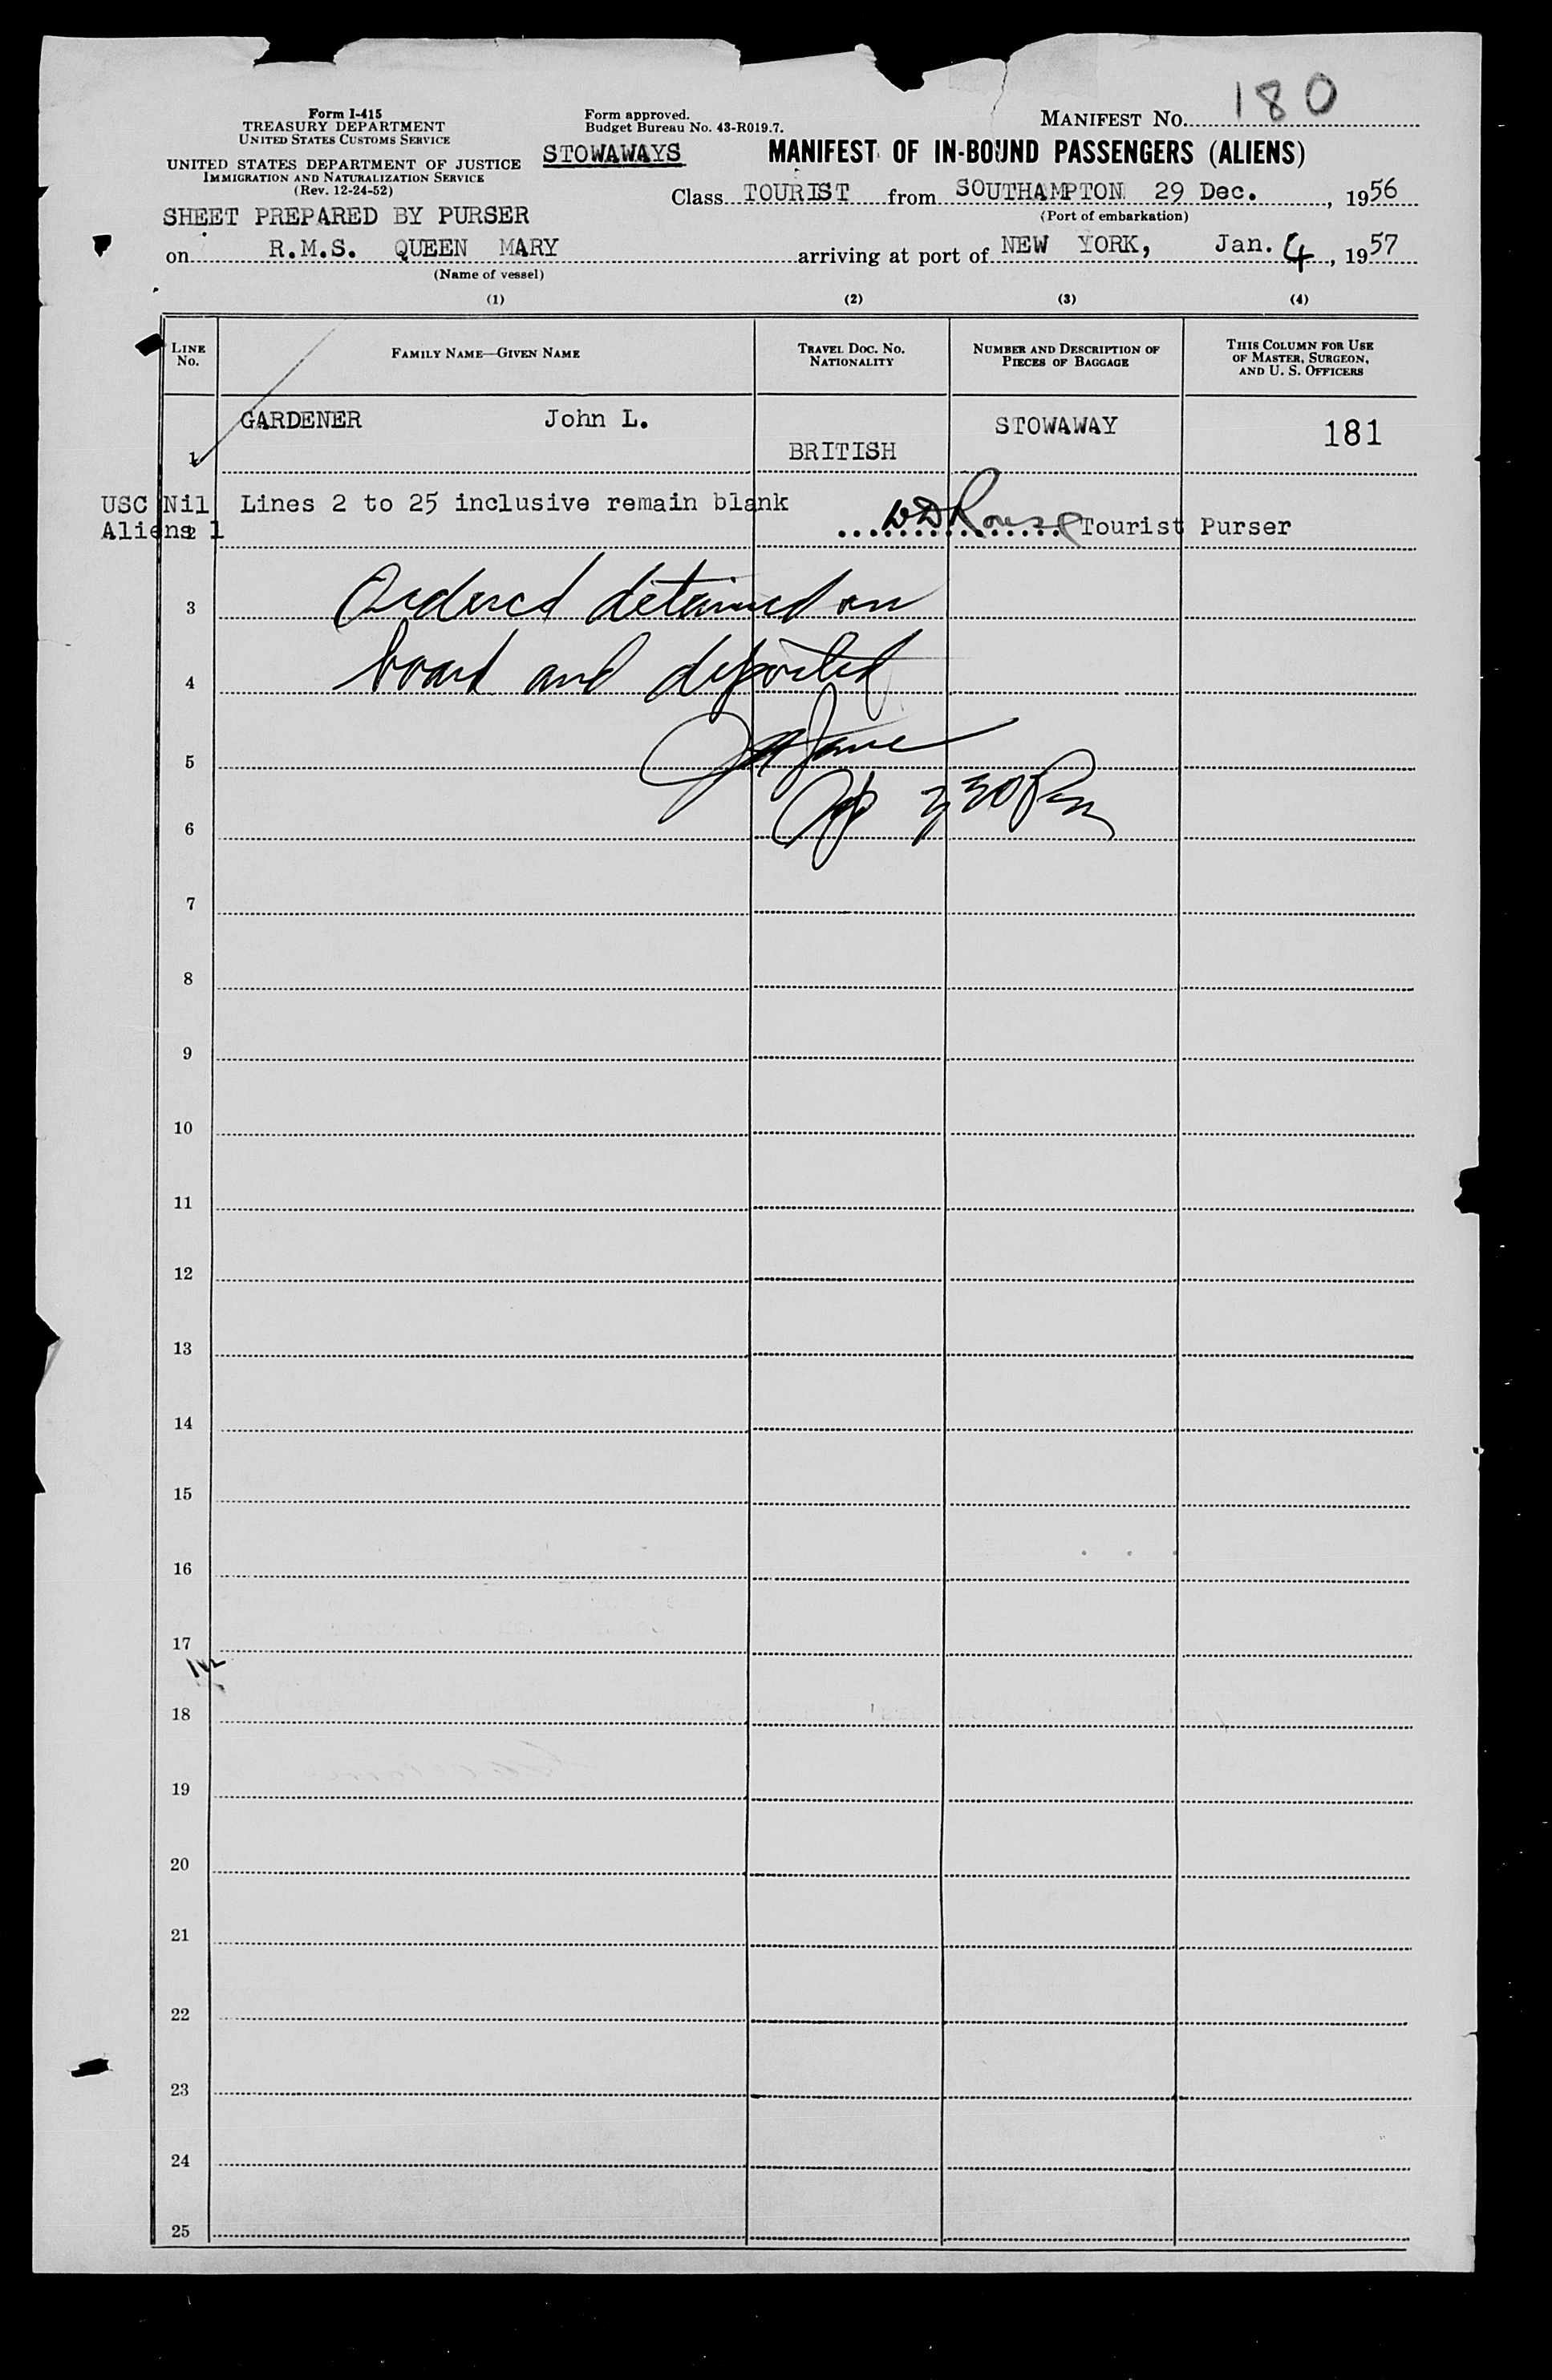 Form I-415
TREASURY DEPARTMENT
UNITED STATES CUSTOMS SERVICE
UNITED STATES DEPARTMENT OF JUSTICE
IMMIGRATION AND NATURALIZATION SERVICE
(Rev. 12-24-52)
Form approved.
Budget Bureau No. 43-R019.7.
MANIFEST NO. 180
STOWAWAYS MANIFEST OF IN-BOUND PASSENGERS (ALIENS)
Class TOURIST from SOUTHAMPTON 29 Dec., 1956
(Port of embarkation)
SHEET PREPARED BY PURSER
on R.M.S. QUEEN MARY arriving at port of NEW YORK, Jan. 4, 1957
(Name of vessel)
(1) (2) (3) (4)
LINE NO. FAMILY NAME—GIVEN NAME TRAVEL DOC. NO. NATIONALITY NUMBER AND DESCRIPTION OF PIECES OF BAGGAGE THIS COLUMN FOR USE OF MASTER, SURGEON, AND U. S. OFFICERS
1 GARDENER John L. BRITISH STOWAWAY 181
USC Nil Lines 2 to 25 inclusive remain blank
Aliens 1 2 Tourist Purser
3 Ordered detained on
4 board and deported
5
6 30 Pm
7
8
9
10
11
12
13
14
15
16
17
18
19
20
21
22
23
24
25